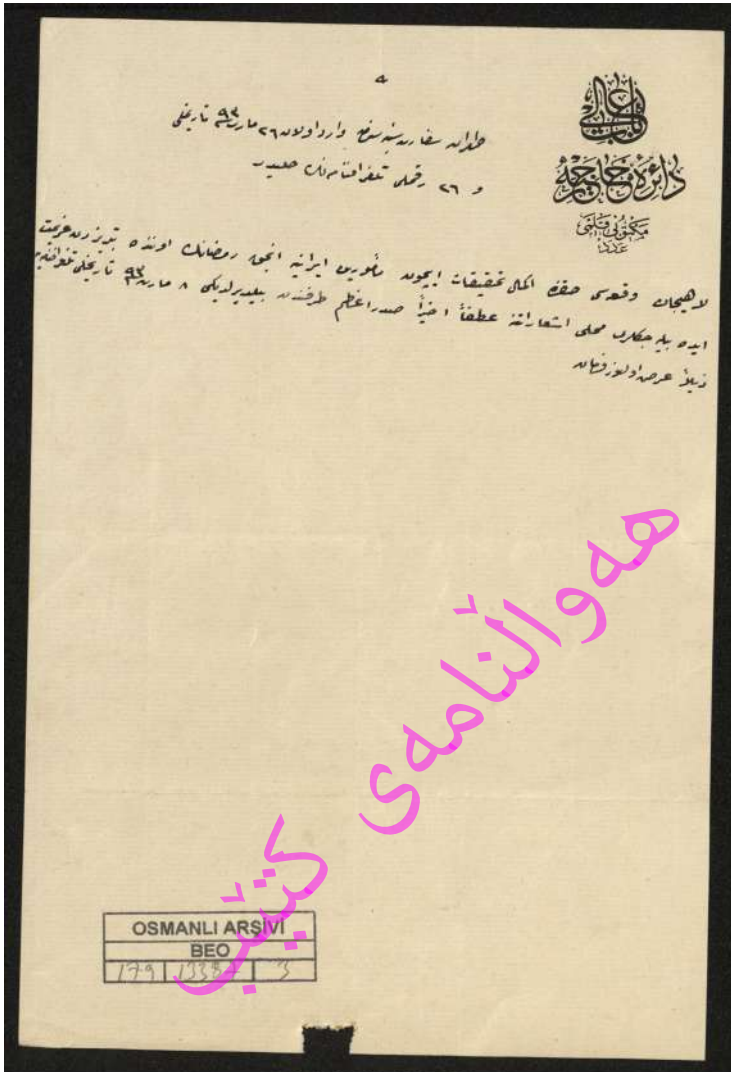 باب عالی
دائرهٔ خارجیه
مكتوبی قلمی
عدد
طهران سفارت سنیه‌سندن وارد اولان ٢٦ مارت ٩٣ تاریخلی
و ٢٦ رقملی تلغرافنامه‌نك حلیدر
لاهیجان وقعه‌سی حقنده اكمال تحقیقات ایچون مأمورین ایرانیه انجق رمضانك اوننده تبریزدن عزیمت
ایده بیله‌جكلری محلی اشعاراتنه عطفاً اخیراً صدراعظم طرفندن بیلدیرلدیكی ٨ مارت ٩٣ تاریخلی تلغرافنامه‌یه
ذیلاً عرض اولنور فرمان
هەواڵنامەی کتێب
OSMANLI ARŞİVİ
BEO
179 13384 3